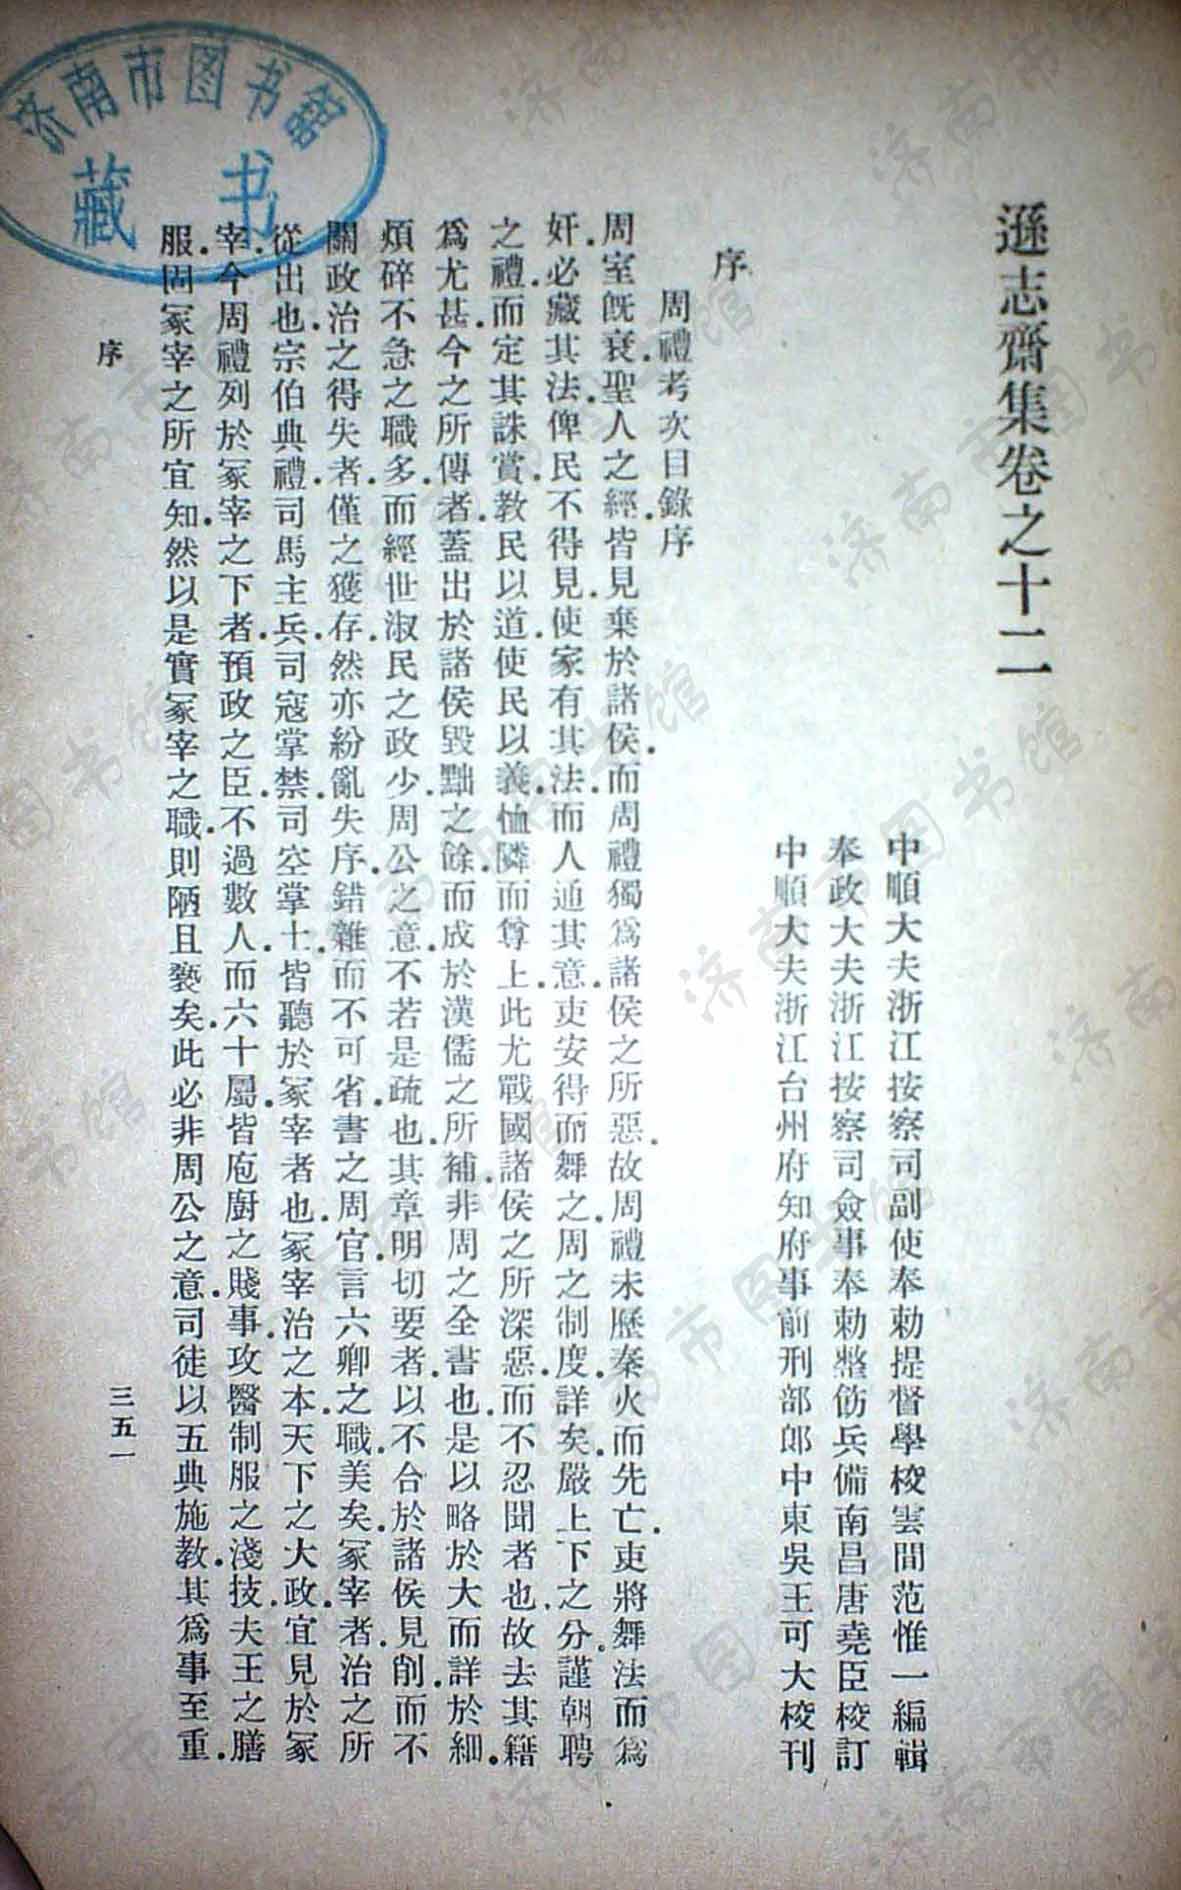 遜志齋集卷之十二
中順大夫浙江按察司副使奉勅提督學校雲間范惟一編輯
奉政大夫浙江按察司僉事奉勅整飭兵備南昌唐堯臣校訂
中順大夫浙江台州府知府事前刑部郎中東吳王可大校刊
序
周禮考次目錄序
周室旣衰聖人之經皆見棄於諸侯而周禮獨爲諸侯之所惡故周禮未歷秦火而先亡吏將舞法而爲
奸必藏其法俾民不得見使家有其法而人通其意吏安得而舞之周之制度詳矣嚴上下之分謹朝聘
之禮而定其誅賞教民以道使民以義恤隣而尊上此尤戰國諸侯之所深惡而不忍聞者也故去其籍
爲尤甚今之所傳者蓋出於諸侯毀黜之餘而成於漢儒之所補非周之全書也是以略於大而詳於細
煩碎不急之職多而經世淑民之政少周公之意不若是疏也其章明切要者以不合於諸侯見削而不
關政治之得失者僅之獲存然亦紛亂失序錯雜而不可省書之周官言六卿之職美矣冢宰者治之所
從出也宗伯典禮司馬主兵司寇掌禁司空掌土皆聽於冢宰者也冢宰治之本天下之大政宜見於冢
宰今周禮列於冢宰之下者預政之臣不過數人而六十屬皆庖廚之賤事攻醫制服之淺技夫王之膳
服固冢宰之所宜知然以是實冢宰之職則陋且褻矣此必非周公之意司徒以五典施教其爲事至重
序
三五一
济南市图书馆
藏书